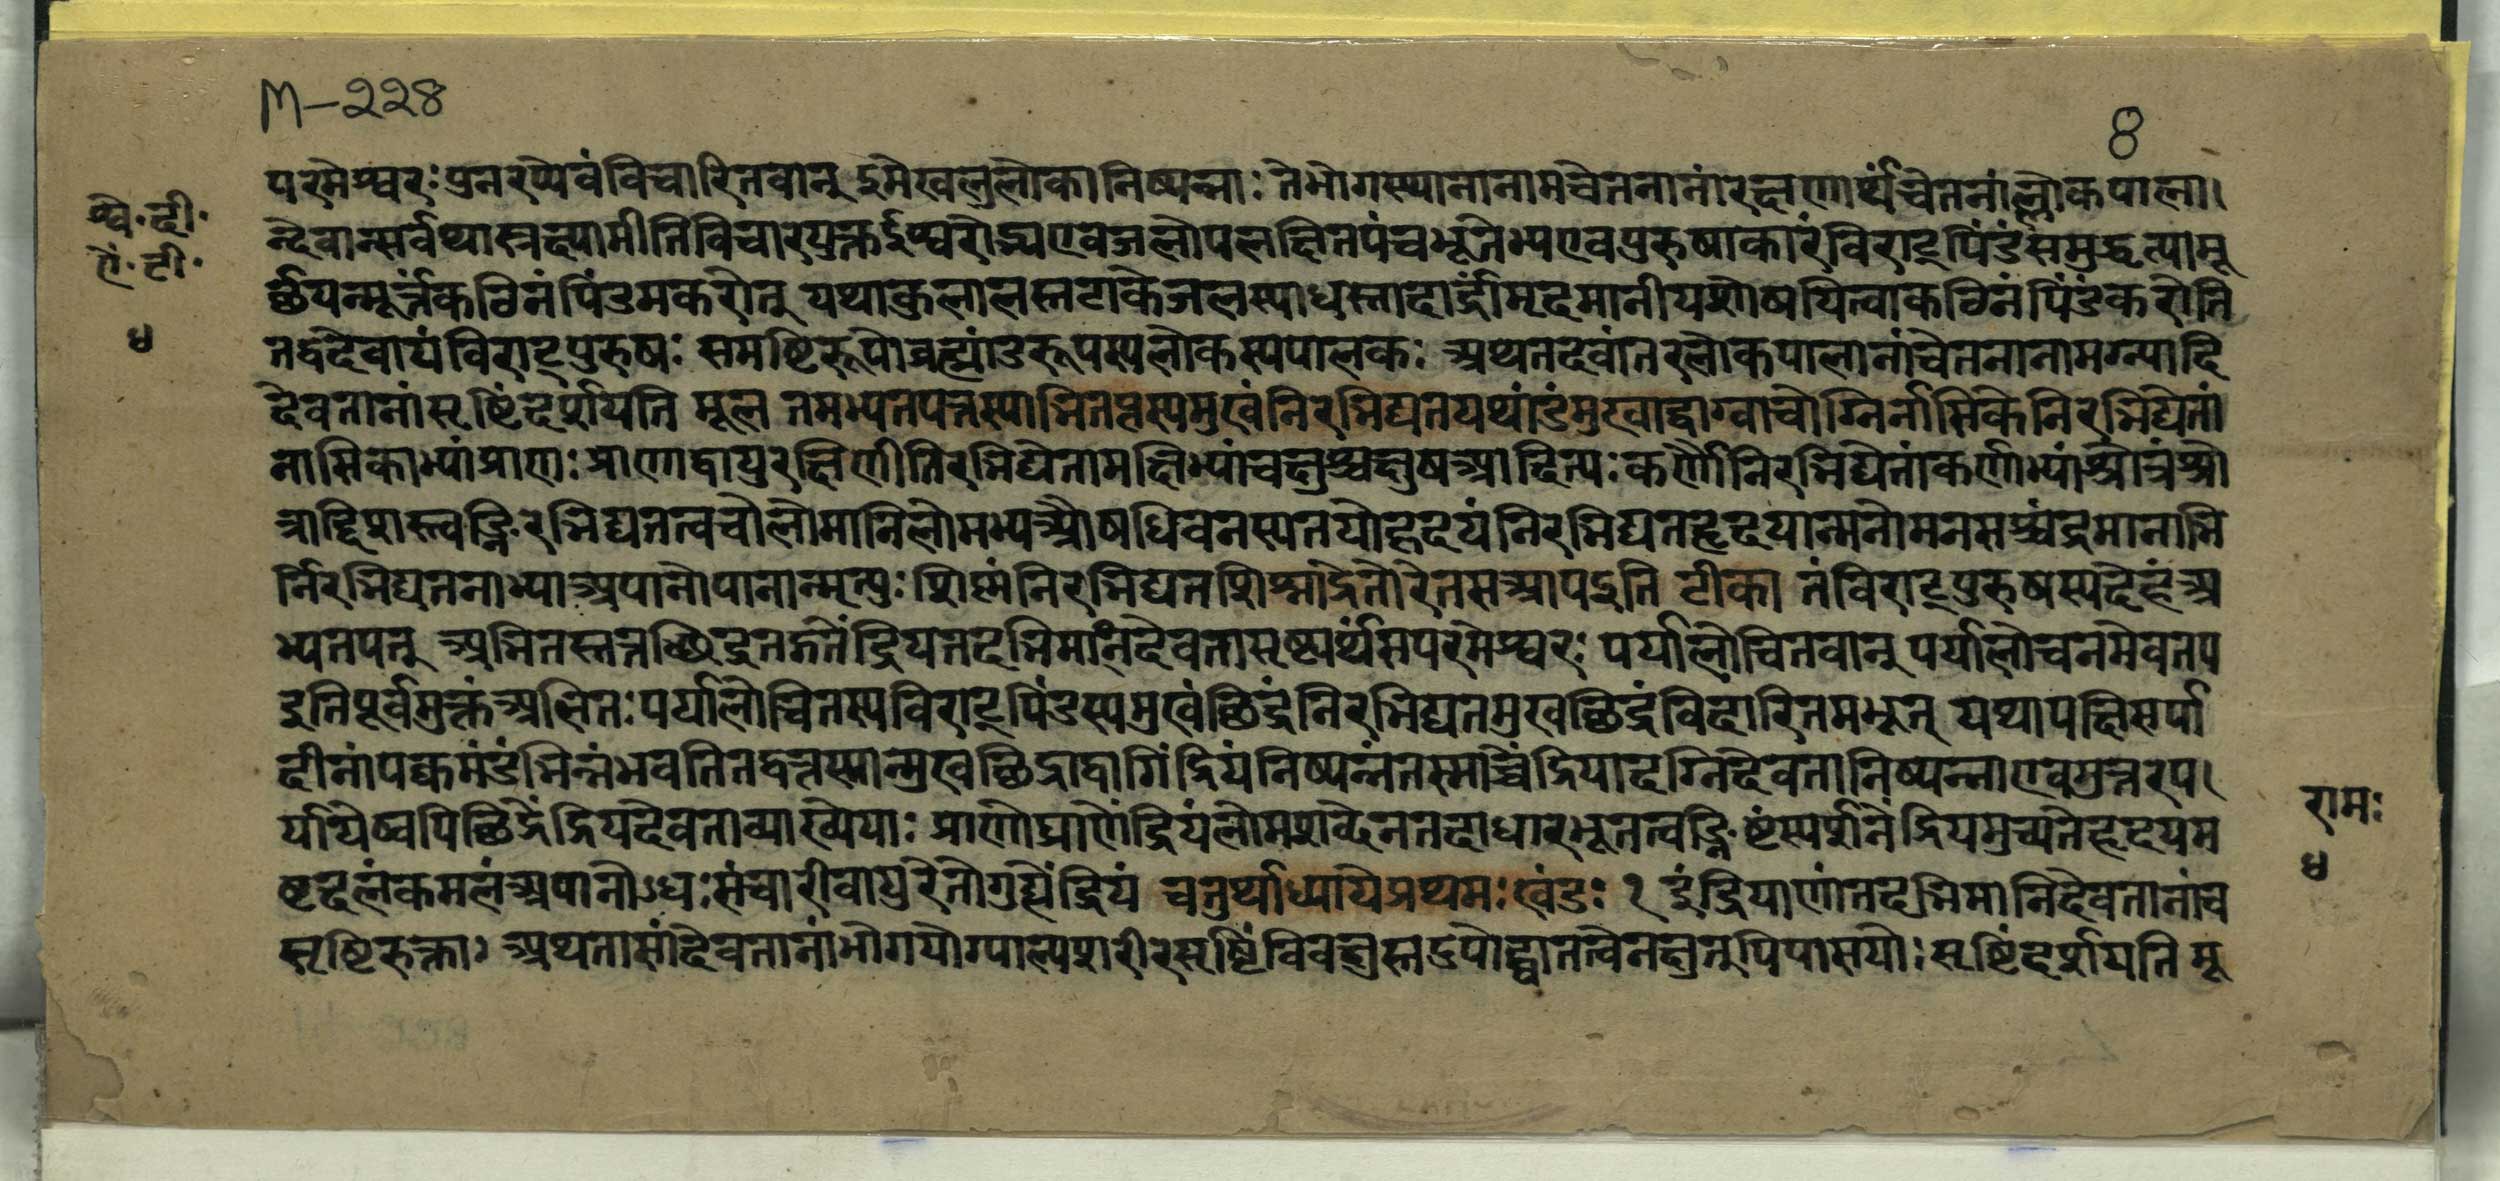 M-228
8
श्वे॰दी॰
ऐं॰टी॰
४
परमेश्वरः पुनरप्येवं विचारितवान् इमे खलु लोका निष्पन्नाः ते भोगस्थानानामचेतनानां रक्षणार्थं चेतनांल्लोकपाला।
न्देवान्सर्वथा स्रक्ष्यामीति विचारयुक्त ईश्वरोद्भ्य एव जलोपलक्षितपंचभूतेभ्य एव पुरुषाकारं विराट्पिंडं समुद्धृत्यामू
र्छयन्मूर्त्तं कठिनं पिंडमकरोत् यथा कुलालस्तटाके जलस्याधस्तादार्द्रां मृदमानीय शोषयित्वा कठिनं पिंडं करोति
तद्वदेवायं विराट्पुरुषः समष्टिरूपो ब्रह्मांडरूपस्य लोकस्य पालकः अथ तदवांतरलोकपालानां चेतनानामग्न्यादि
देवतानां सृष्टिं दर्शयति मूल तमभ्यतपत्तस्याभितप्तस्य मुखं निरभिद्यत यथांडं मुखाद्वाग्वाचोग्निर्नासिके निरभिद्येतां
नासिकाभ्यां प्राणः प्राणाद्वायुरक्षिणी निरभिद्येतामक्षिभ्यां चक्षुश्चक्षुष आदित्यः कर्णौ निरभिद्येतां कर्णाभ्यां श्रोत्रं श्रो
त्राद्दिशस्त्वङ्निरभिद्यत त्वचो लोमानि लोमभ्य ओषधिवनस्पतयो हृदयं निरभिद्यत हृदयान्मनो मनसश्चंद्रमा नाभि
र्निरभिद्यत नाभ्या अपानोपानान्मृत्युः शिश्नं निरभिद्यत शिश्नाद्रेतो रेतस आप इति टीका तं विराट्पुरुषस्य देहं अ
भ्यतपत् अभितस्तत्तच्छिद्रतत्तेंद्रियतदभिमानिदेवतासृष्ट्यर्थं स परमेश्वरः पर्यालोचितवान् पर्यालोचनमेव तप
इति पूर्वमुक्तं अभितः पर्यालोचितस्य विराट्पिंडस्य मुखं छिद्रं निरभिद्यत मुखछिद्रं विदारितमभूत् यथा पक्षिसर्पा
दीनां पक्वमंडं भिन्नं भवति तद्वत्तस्मान्मुखछिद्राद्वागिंद्रियं निष्पन्नं तस्माच्चेंद्रियादग्निर्देवता निष्पन्ना एवमुत्तरप।
र्यायेष्वपि छिद्रेंद्रियदेवता व्याख्येयाः प्राणो घ्राणेंद्रियं लोमशब्देन तदाधारभूतत्वङ्निष्टं स्पर्शनेंद्रियमुच्यते हृदयम
ष्टदलं कमलं अपानोऽधः संचारी वायू रेतो गुह्येंद्रियं चतुर्थाध्याये प्रथमः खंडः १ इंद्रियाणां तदभिमानिदेवतानां च
सृष्टिरुक्ता। अथ तासां देवतानां भोगयोग्याल्पशरीरसृष्टिं विवक्षुस्तदुपोद्घातत्वेन क्षुत्पिपासयोः सृष्टिं दर्शयति मू
रामः
४